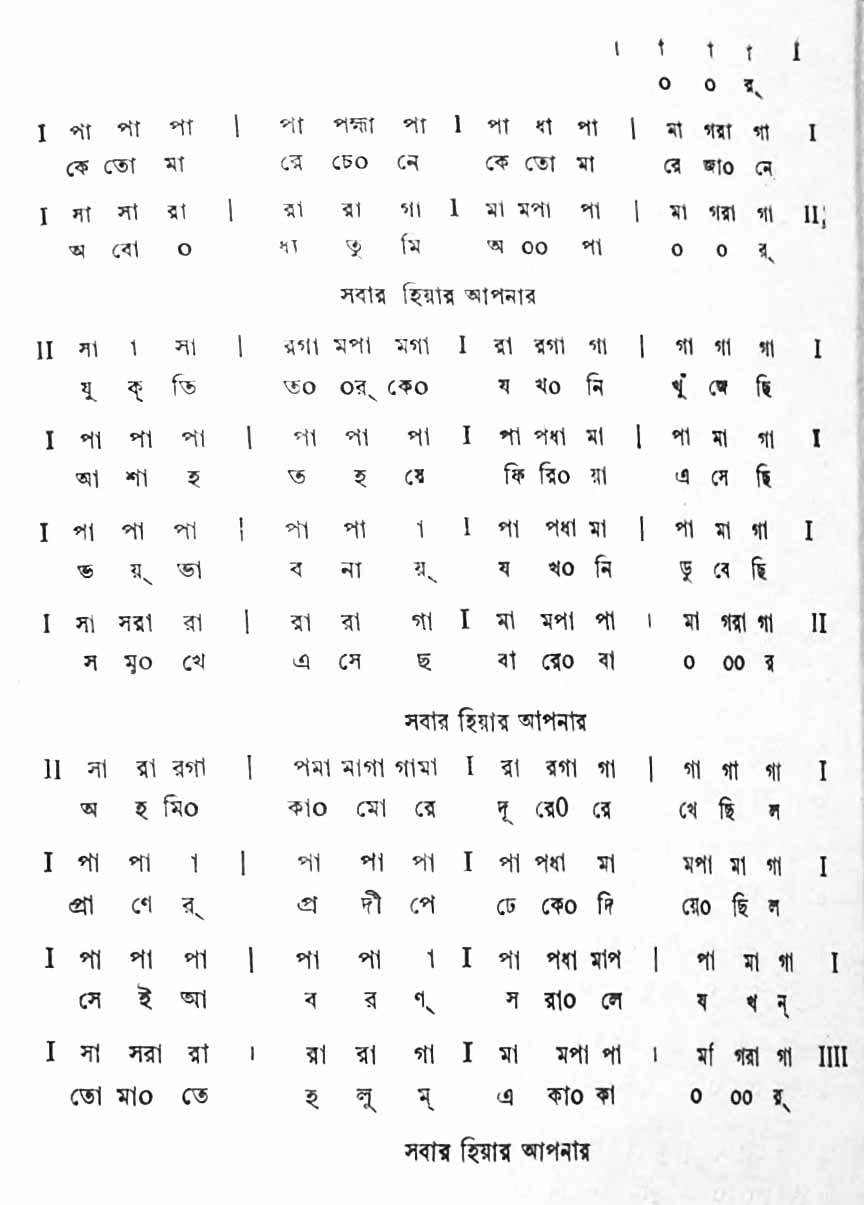 । † † † I
০ ০ র্
I পা পা পা | পা পহ্মা পা I পা ধা পা | মা গরা গা I
কে তো মা রে চে০ নে কে তো মা রে জা০ নে
I সা সা রা | রা রা গা I মা মপা পা | মা গরা গা II;
অ বো ০ ধ্য তু মি অ ০০ পা ০ ০ র্
সবার হিয়ার আপনার
II সা া সা | রগা মপা মগা I রা রগা গা | গা গা গা I
যু ক্ তি ত০ ০র্ কে০ য খ০ নি খুঁ জে ছি
I পা পা পা | পা পা পা I পা পধা মা | পা মা গা I
আ শা হ ত হ য়ে ফি রি০ য়া এ সে ছি
I পা পা পা | পা পা া I পা পধা মা | পা মা গা I
ভ য়্ ভা ব না য়্ য খ০ নি ডু বে ছি
I সা সরা রা | রা রা গা I মা মপা পা । মা গরা গা II
স মু০ খে এ সে ছ বা রে০ বা ০ ০০ র
সবার হিয়ার আপনার
II সা রা রগা | পমা মাগা গামা I রা রগা গা | গা গা গা I
অ হ মি০ কা০ মো রে দূ রে০ রে খে ছি ল
I পা পা া | পা পা পা I পা পধা মা মপা মা গা I
প্রা ণে র্ প্র দী পে ঢে কে০ দি য়ে০ ছি ল
I পা পা পা | পা পা া I পা পধা মাপ | পা মা গা I
সে ই আ ব র ণ্ স রা০ লে য খ ন্
I সা সরা রা । রা রা গা I মা মপা পা । মা গরা গা IIII
তো মা০ তে হ লু ম্ এ কা০ কা ০ ০০ র্
সবার হিয়ার আপনার